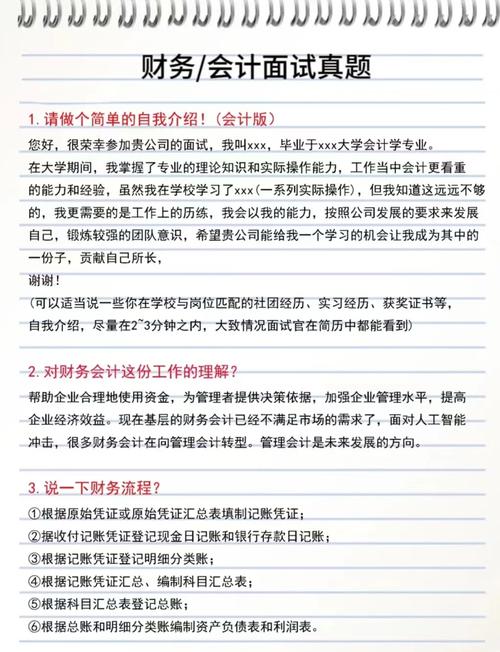 财务/会计面试真题
1.请做个简单的自我介绍！(会计版)
您好，很荣幸参加贵公司的面试，我叫xxx，毕业于xxx大学会计学专业。
在大学期间，我掌握了专业的理论知识和实际操作能力，工作当中会计更看重
的能力和经验，虽然我在学校学习了xxx(一系列实际操作)，但我知道这远远不够
的，我更需要的是工作上的历练，我会以我的能力，按照公司发展的要求来发展
自己，锻炼较强的团队意识，希望贵公司能给我一个学习的机会让我成为其中的
一份子，贡献自己所长，
谢谢！
(可以适当说一些你在学校与岗位匹配的社团经历、实习经历、获奖证书等，
自我介绍，尽量在2~3分钟之内，大致情况面试官在简历中都能看到)
2.对财务会计这份工作的理解？
帮助企业合理地使用资金，为管理者提供决策依据，加强企业管理水平，提高
企业经济效益。现在基层的财务会计已经不满足市场的需求了，面对人工智能
冲击，很多财务会计在向管理会计转型。管理会计是未来发展的方向。
3.说一下财务流程？
①根据原始凭证或原始凭证汇总表填制记账凭证；
②据收付记账凭证登记现金日记账和银行存款日记账；
③根据记账凭证登记明细分类账；
④根据记账凭证汇总、编制科目汇总表；
⑤根据科目汇总表登记总账；
⑥根据总账和明细分类账编制资产负债表和利润表。